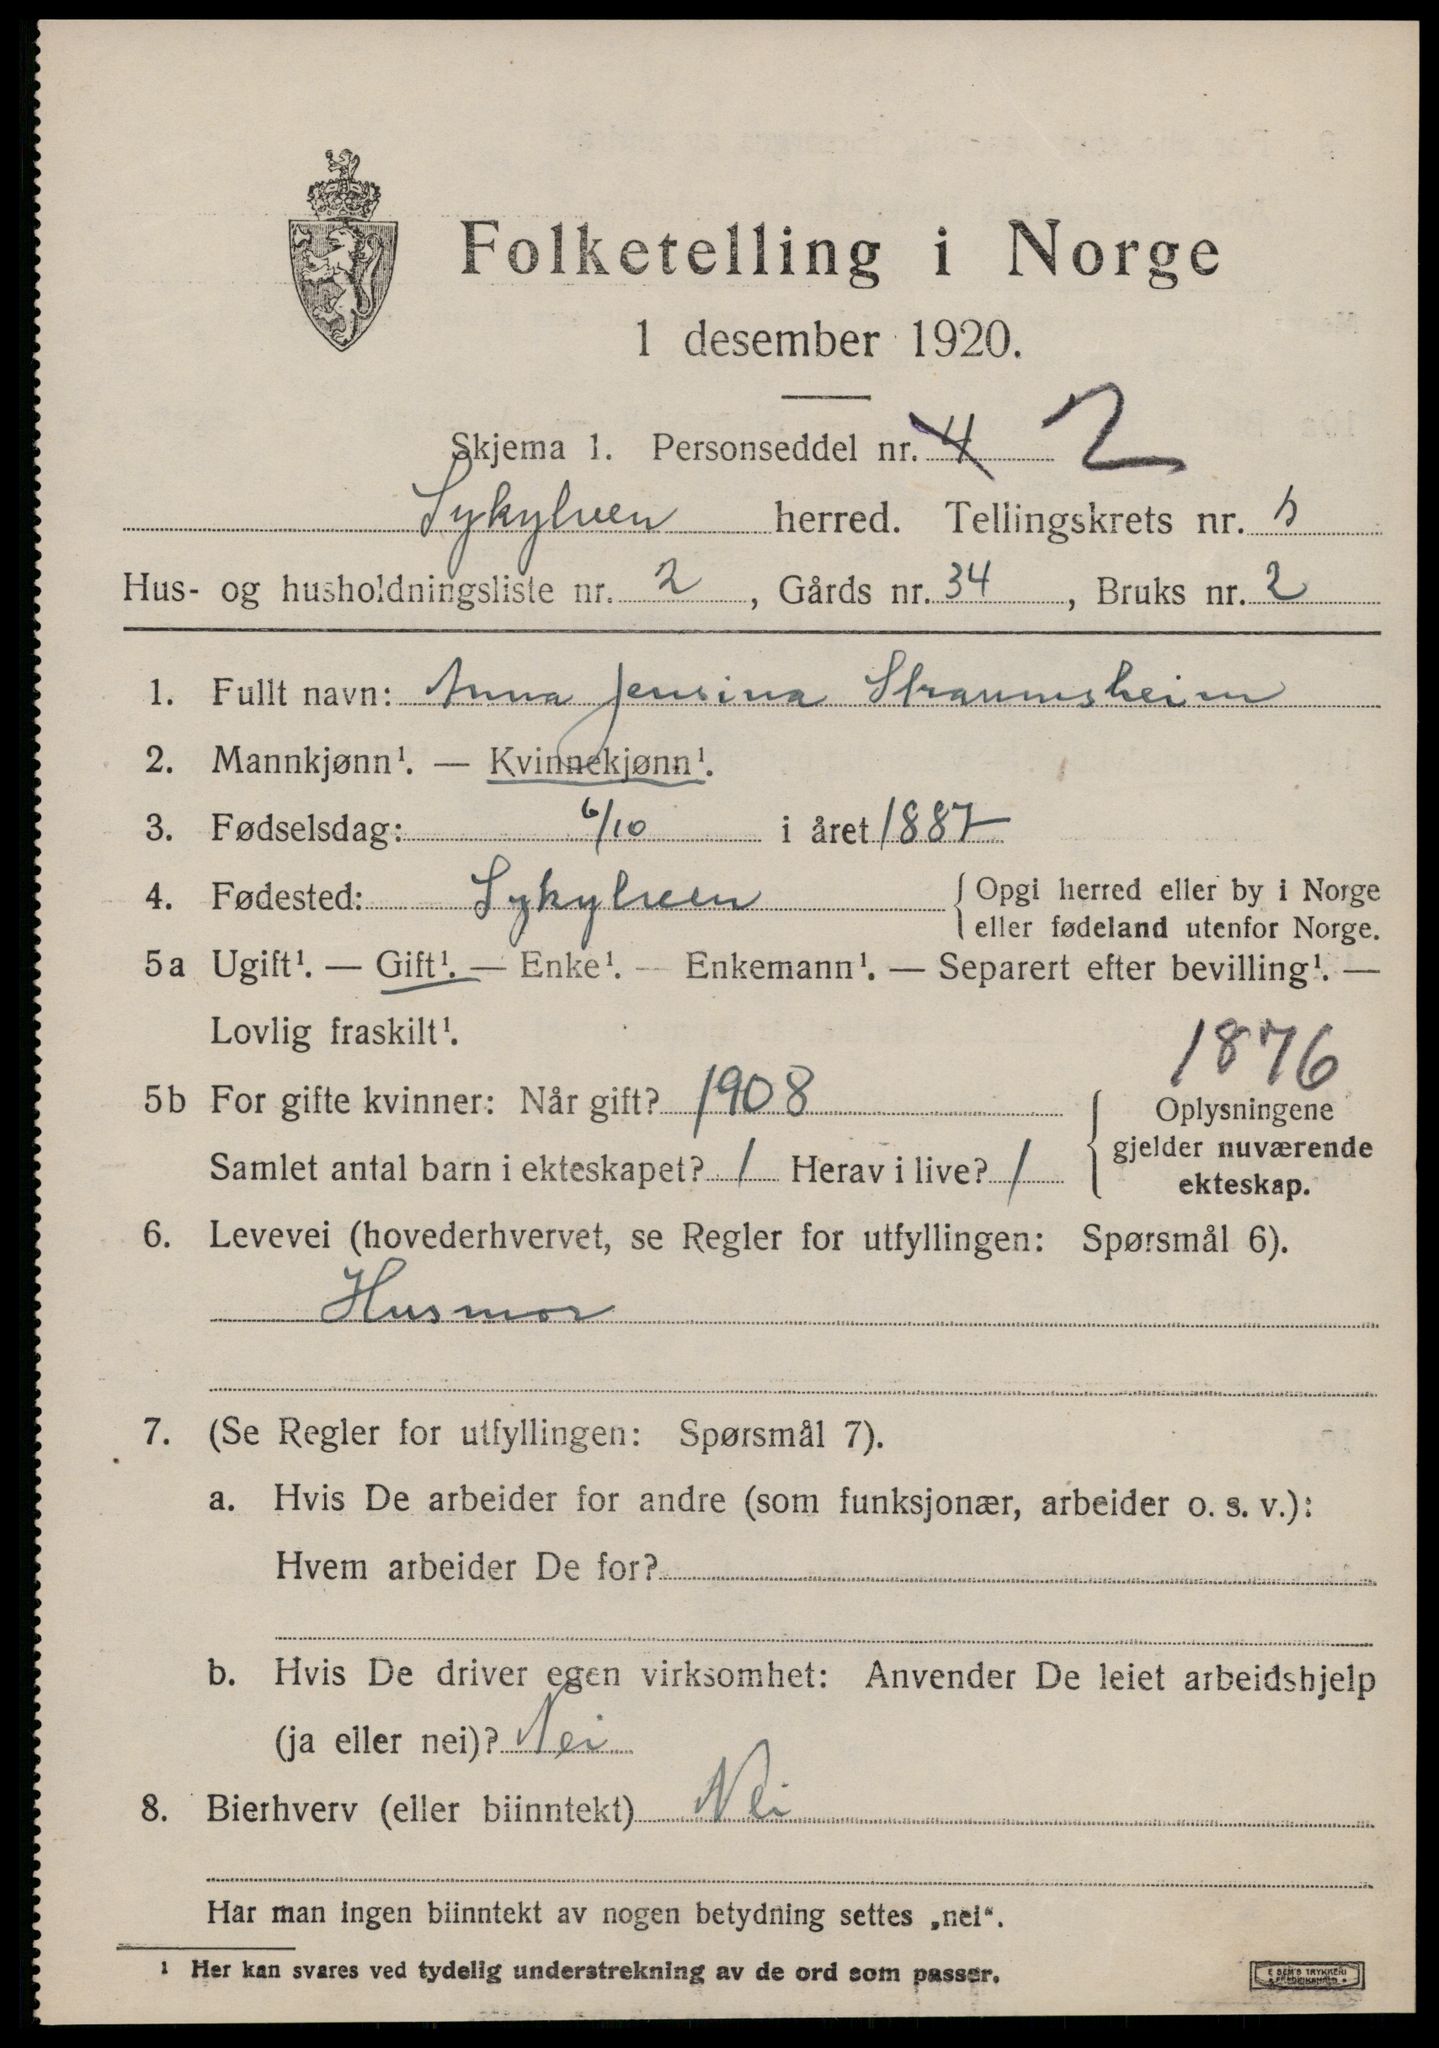 Folketelling i Norge
1 desember 1920.
Skjema 1. Personseddel nr. 4 2
Sykylven herred. Tellingskrets nr. 5
Hus- og husholdningsliste nr. 2, Gårds nr. 34, Bruks nr. 2
1. Fullt navn: Anna Jensina Straumsheim
2. Mannkjønn¹. — Kvinnekjønn¹.
3. Fødselsdag: 6/10 i året 1887
4. Fødested: Sykylven { Opgi herred eller by i Norge
eller fødeland utenfor Norge.
5a Ugift¹. — Gift¹. — Enke¹. — Enkemann¹. — Separert efter bevilling¹. —
Lovlig fraskilt¹.
1876
5b For gifte kvinner: Når gift? 1908 { Oplysningene
gjelder nuværende
Samlet antal barn i ekteskapet? 1 Herav i live? 1
ekteskap.
6. Levevei (hovederhvervet, se Regler for utfyllingen: Spørsmål 6).
Husmor
7. (Se Regler for utfyllingen: Spørsmål 7).
a. Hvis De arbeider for andre (som funksjonær, arbeider o. s. v.):
Hvem arbeider De for?
b. Hvis De driver egen virksomhet: Anvender De leiet arbeidshjelp
(ja eller nei)? Nei
8. Bierhverv (eller biinntekt) Nei
Har man ingen biinntekt av nogen betydning settes „nei“.
¹ Her kan svares ved tydelig understrekning av de ord som passer.